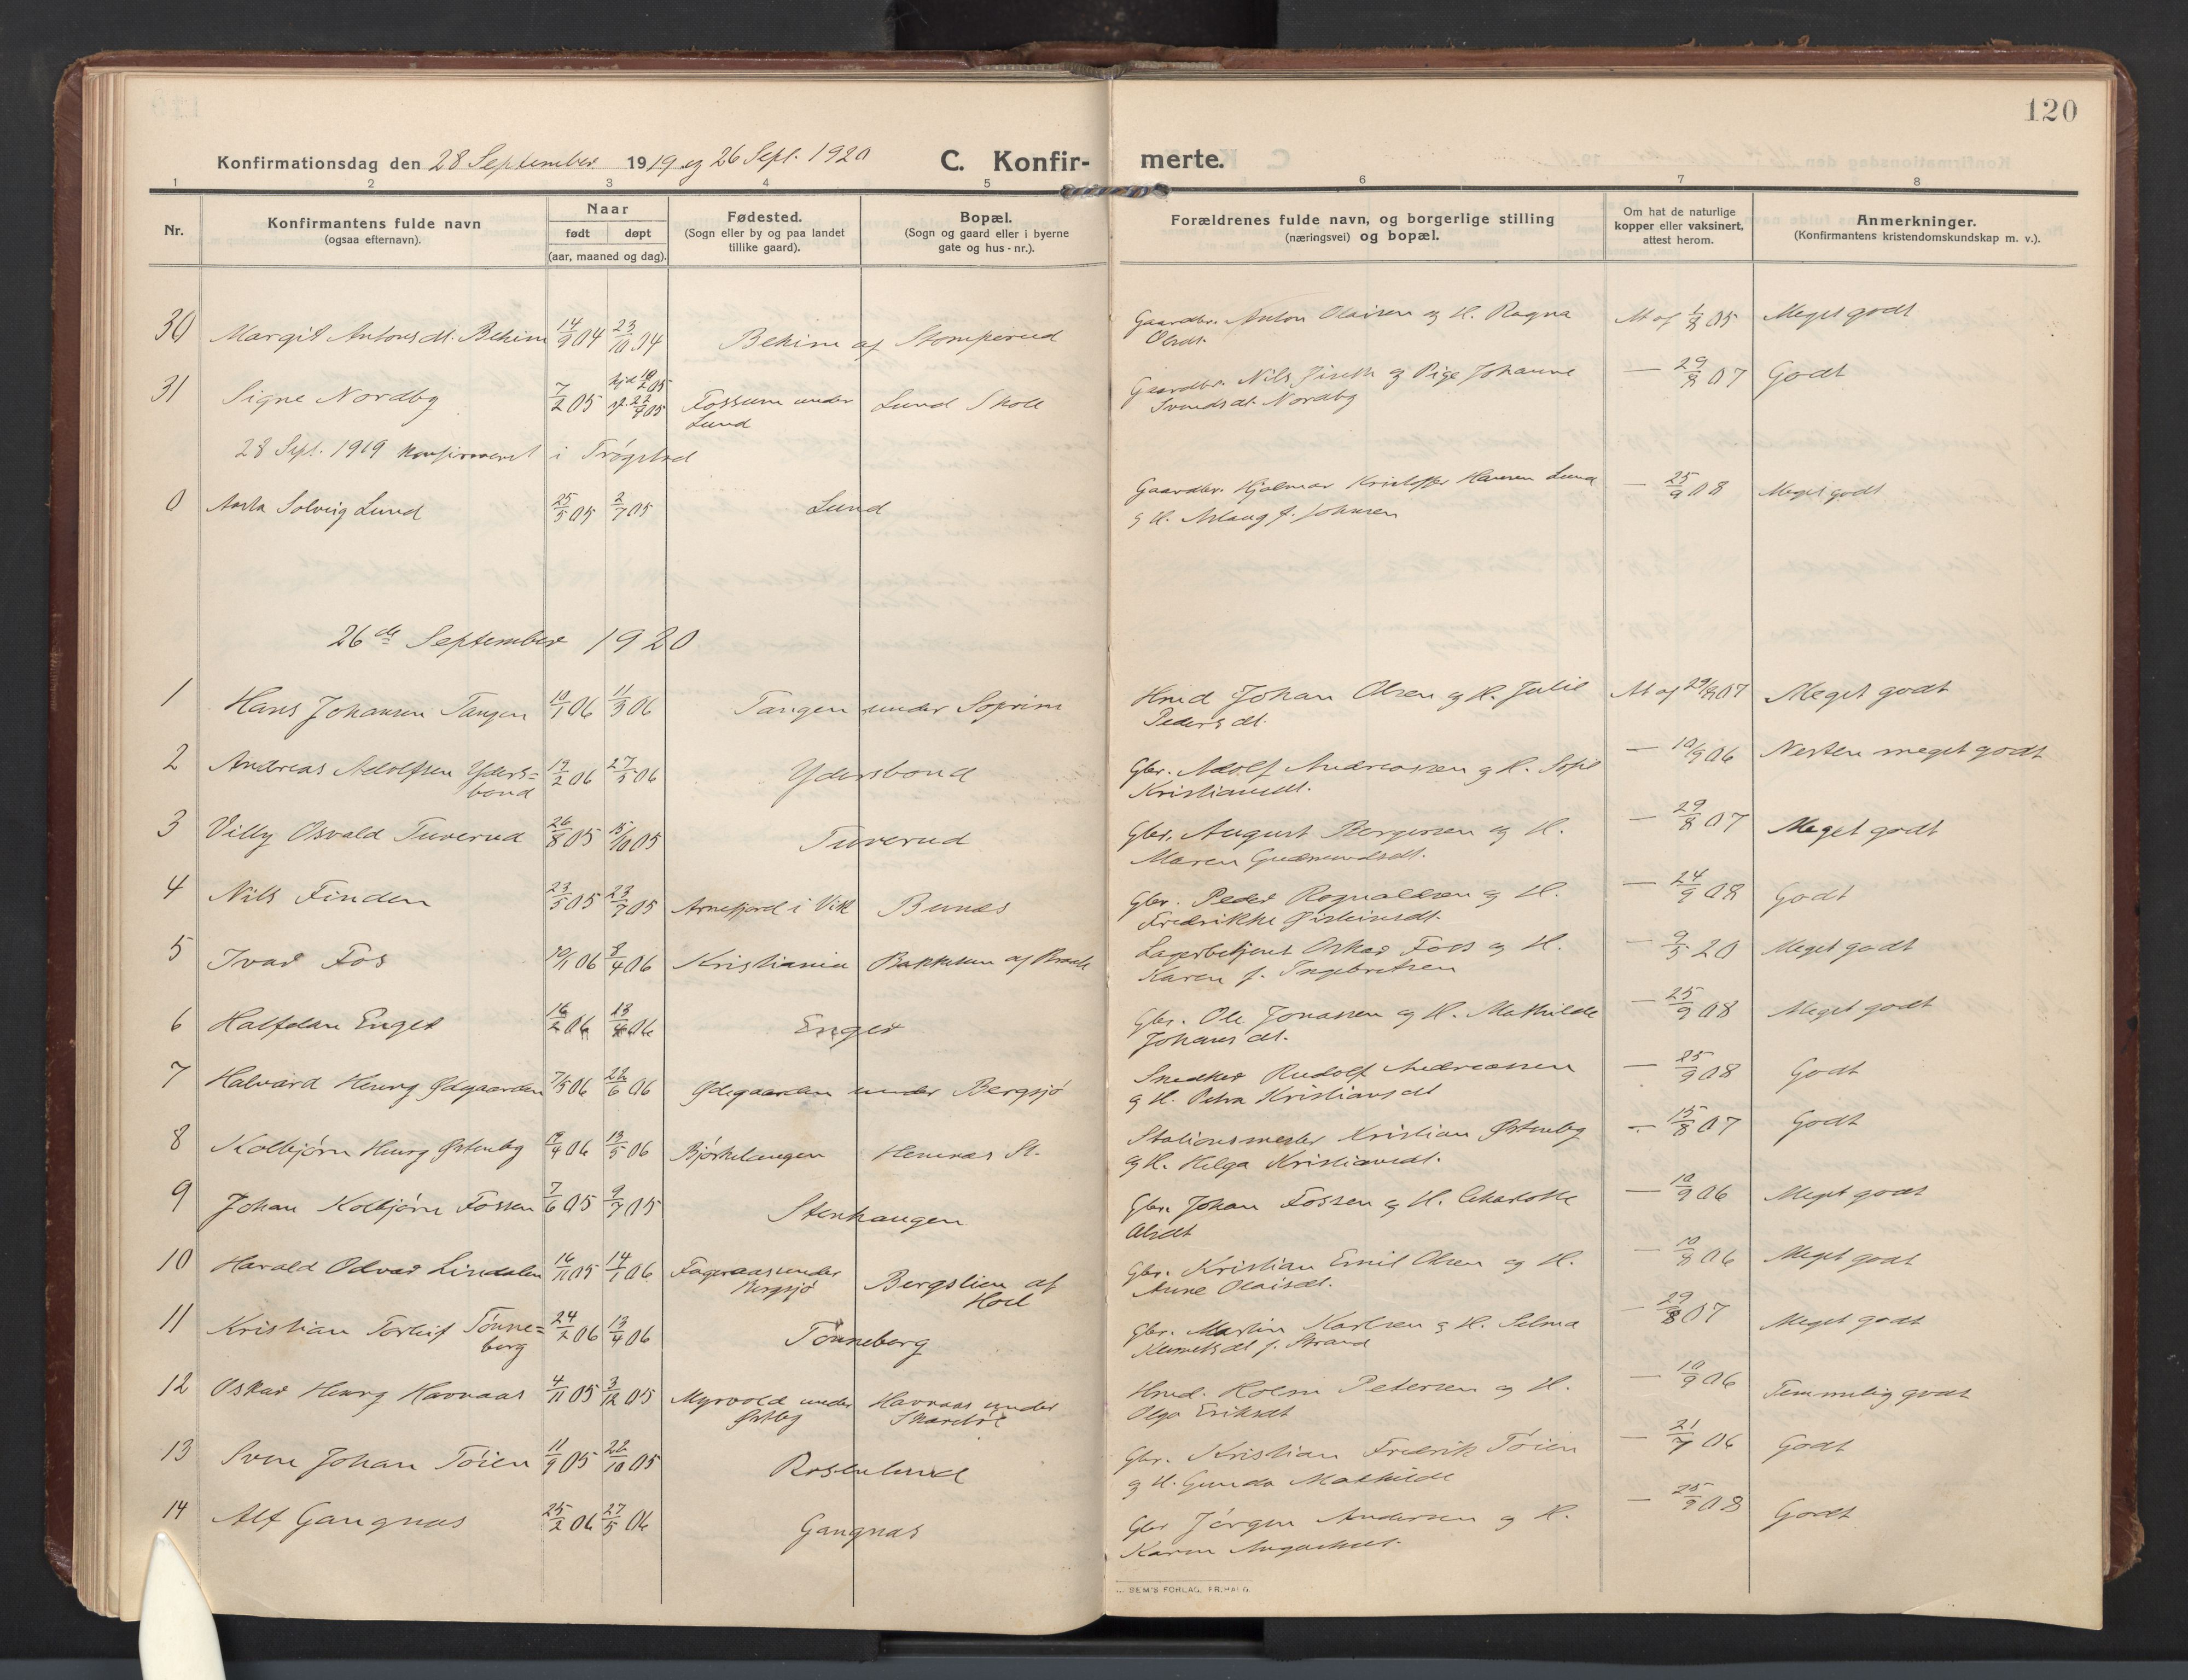 120
Konfirmationsdag den 28 September 1919 og 26 Sept. 1920 C. Konfir- merte.
1 2 3 4 5 6 7 8
Nr.
Konfirmantens fulde navn
(ogsaa efternavn).
Naar
født døpt
(aar, maaned og dag).
Fødested.
(Sogn eller by og paa landet
tillike gaard).
Bopæl.
(Sogn og gaard eller i byerne
gate og hus-nr.).
Forældrenes fulde navn, og borgerlige stilling
(næringsvei) og bopæl.
Om hat de naturlige
kopper eller vaksinert,
attest herom.
Anmerkninger.
(Konfirmantens kristendomskundskap m. v.).
30 Margit Antonsdt. Behim 14/9 04 23/10 04 Behim af Stomperud Gaardbr. Anton Olaisen og H. Ragna At af 1/8 05 Meget godt
Olsdt.
31 Signe Nordby 7/2 05 Fossum under Lund Skole Gaardbr. Nils og Pige Johanne — 29/8 07 Godt
Lund Svendsdt. Nordby
28 Sept. 1919 konfirmeret i Trøgstad
0 Asta Solveig Lund 25/5 05 2/7 05 Lund Gaardbr. Hjalmar Kristoffer Hansen Lund — 25/9 08 Meget godt
og H. Aslaug f. Johnsen
26de September 1920
1 Hans Johansen Tangen 10/1 06 11/3 06 Tangen under Soprim Hmd Johan Olsen og H. Julie At af 29/8 07 Meget godt
Pedersdt.
2 Andreas Adolfsen Yders= 19/2 06 27/5 06 Ydersbond Gbr. Adolf Andreassen og H. Sofie — 10/9 06 Nesten meget godt
bond Kristiansdt.
3 Villy Osvald Tuverud 26/8 05 15/10 05 Tuverud Gbr. August Bergersen og H. — 29/8 07 Meget godt
Maren Gudmundsdt.
4 Nils Finden 23/5 05 23/7 05 Arnefjord i Vik Bunes Gbr. Peder Rognaldsen og H. — 24/9 08 Godt
Fredrikke Øisteinsdt.
5 Ivar Fos 20/1 06 8/4 06 Kristiania Bakketun af Lagerbetjent Oskar Foss og H. — 9/5 20 Meget godt
Karen f. Ingebretsen
6 Halfdan Enger 16/2 06 13/4 06 Enger Gbr. Ole Jonassen og H. Mathilde — 25/9 08 Meget godt
Johansdt.
7 Halvard Henry Ødegaarden 7/5 06 22/6 06 Ødegaarden under Bergsjø Snedker Rudolf Andreassen — 25/9 08 Godt
og H. Petra Kristiansdt
8 Kolbjørn Henry Østenby 19/4 06 13/5 06 Bjørkelangen Hemnæs St. Stationsmester Kristian Østenby — 15/8 07 Godt
og H. Helga Kristiansdt.
9 Johan Kolbjørn Fossen 7/6 05 9/7 05 Stenhaugen Gbr. Johan Fossen og H. Charlotte — 10/9 06 Meget godt
Olsdt
10 Harald Odvar Lindalen 16/11 05 14/1 06 Fageraas under Bergslien af Gbr. Kristian Emil Olsen og H. — 10/8 06 Meget godt
Bergsjø Hoel Anne Olaisdt.
11 Kristian Torleif Tønne= 24/2 06 13/4 06 Tønneberg Gbr. Martin Karlsen og H. Selma — 29/8 07 Meget godt
berg f. Strand
12 Oskar Henry Havnaas 4/11 05 3/12 05 Myrvold under Havnaas under Hmd. Holm Petersen og H. — 10/9 06 Temmelig godt
Østby Olga Eriksdt
13 Sven Johan Tøien 11/9 05 22/10 05 Rosenlund Gbr. Kristian Fredrik Tøien — 21/7 06 Godt
og H. Gunda Mathilde
14 Alf Gangnæs 25/2 06 27/5 06 Gangnæs Gbr Jørgen Andersen og H. — 25/9 08 Godt
Karen
SEM'S FORLAG, FR.HALD